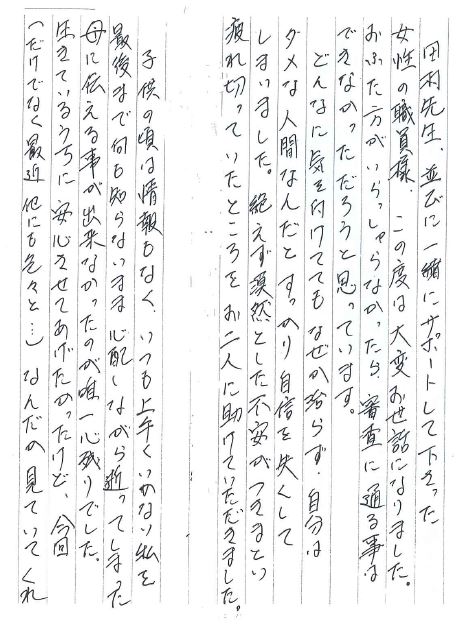 田村先生、並びに一緒にサポートして下さった
女性の職員様、この度は大変お世話になりました。
おふた方がいらっしゃらなかったら審査に通る事は
できなかっただろうと思っています。
どんなに気を付けててもなぜか治らず、自分は
ダメな人間なんだとすっかり自信を失くして
しまいました。絶えず漠然とした不安がつきまとい
疲れ切っていたところをお二人に助けていただきました。
子供の頃は情報もなく、いつも上手くいかない私を
最後まで何も知らないまま心配しながら逝ってしまった
母に伝える事が出来なかったのが唯一心残りでした。
生きているうちに安心させてあげたかったけど、今回
(だけでなく最近他にも色々と…)なんだか見ていてくれ